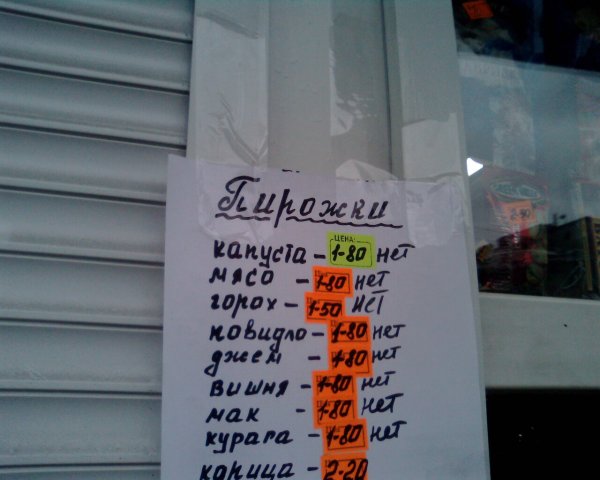 Пирожки
капуста - ЦЕНА: 1-80 нет
мясо - 1-80 нет
горох - 1-50 нет
повидло - 1-80 нет
джем - 1-80 нет
вишня - 1-80 нет
мак - 1-80 нет
курага - 1-80 нет
корица - 2-20